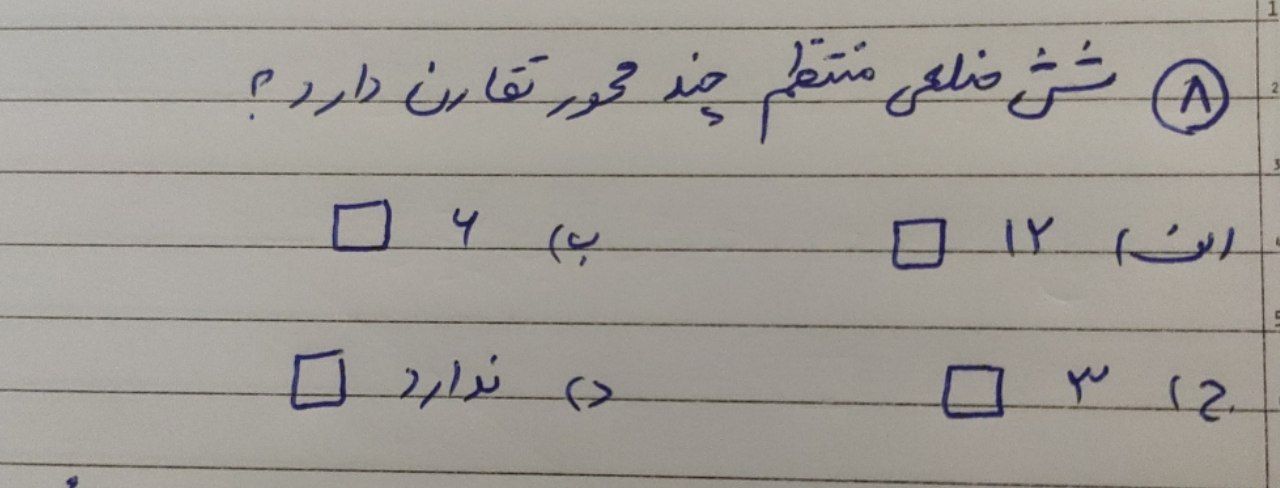 ۸ شش ضلعی منتظم چند محور تقارن دارد؟
الف) ۱۲ ب) ۶
ج) ۳ د) ندارد